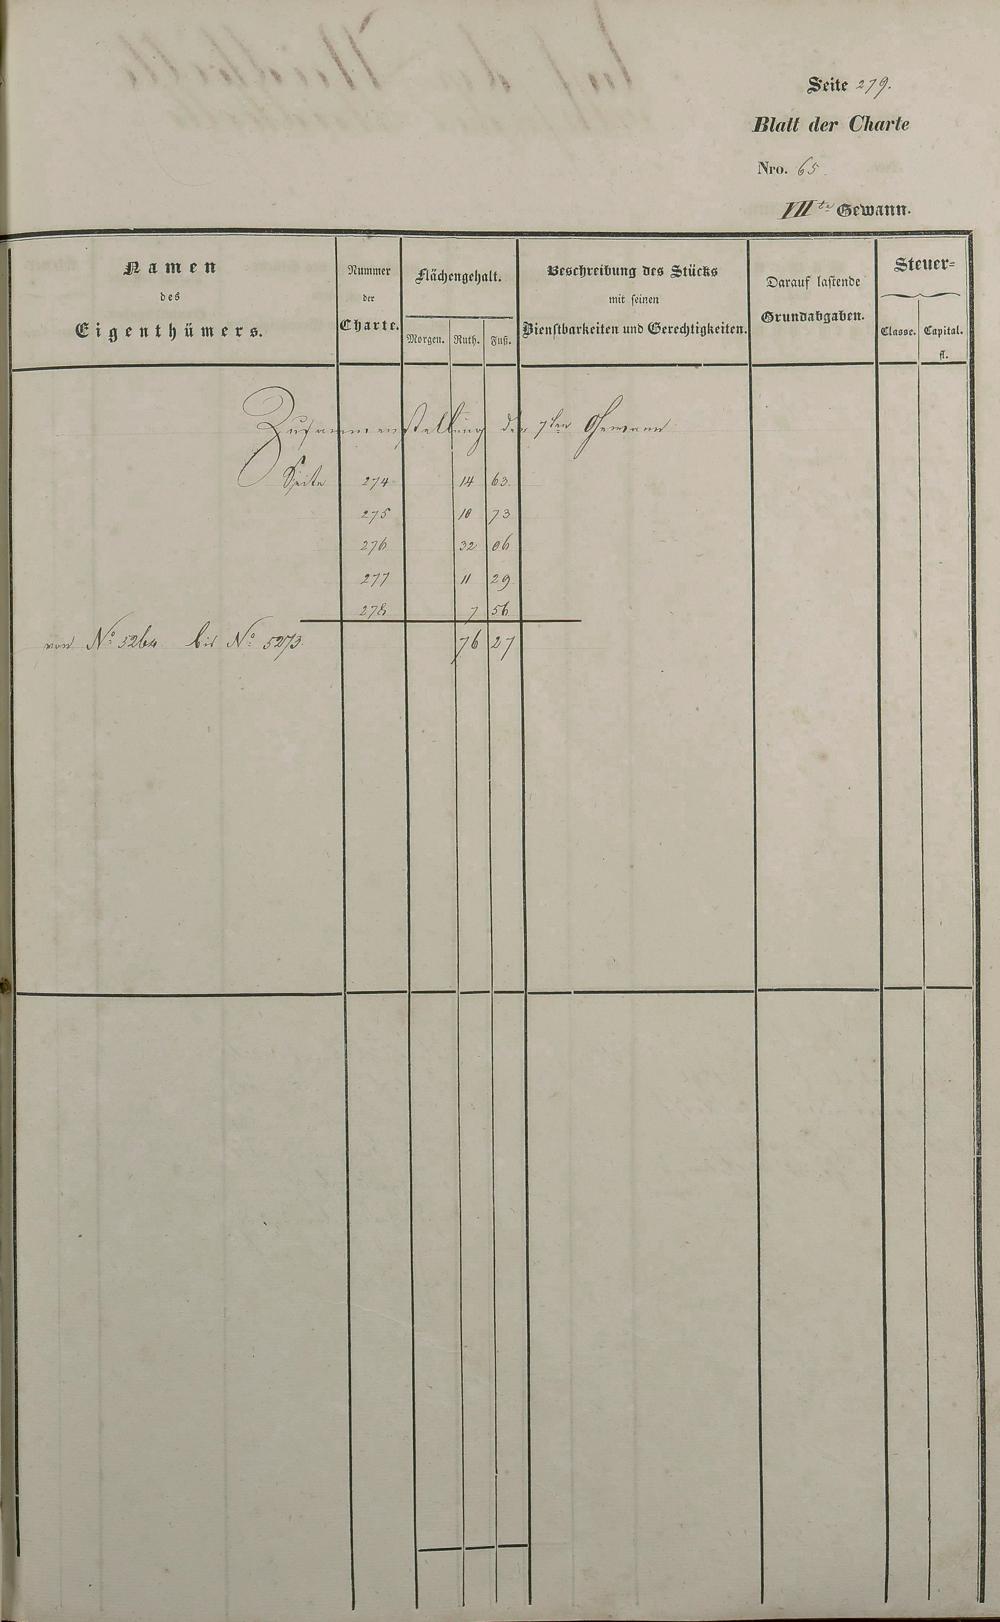 Seite 279.
Blatt der Charte
Nro. 65.
VIIte Gewann.
Namen des Eigenthümers.
Nummer der Charte.
Flächengehalt.
Morgen. Ruth. Fuß.
Beschreibung des Stücks mit seinen Dienstbarkeiten und Gerechtigkeiten.
Darauf lastende Grundabgaben.
Steuer=
Classe. Capital. fl.
Zusammenstellung der 7ten Gewann
Seite 274 14 63
275 10 73
276 32 06
277 11 29
278 7 56
von No 5264 bis No 5273. 76 27